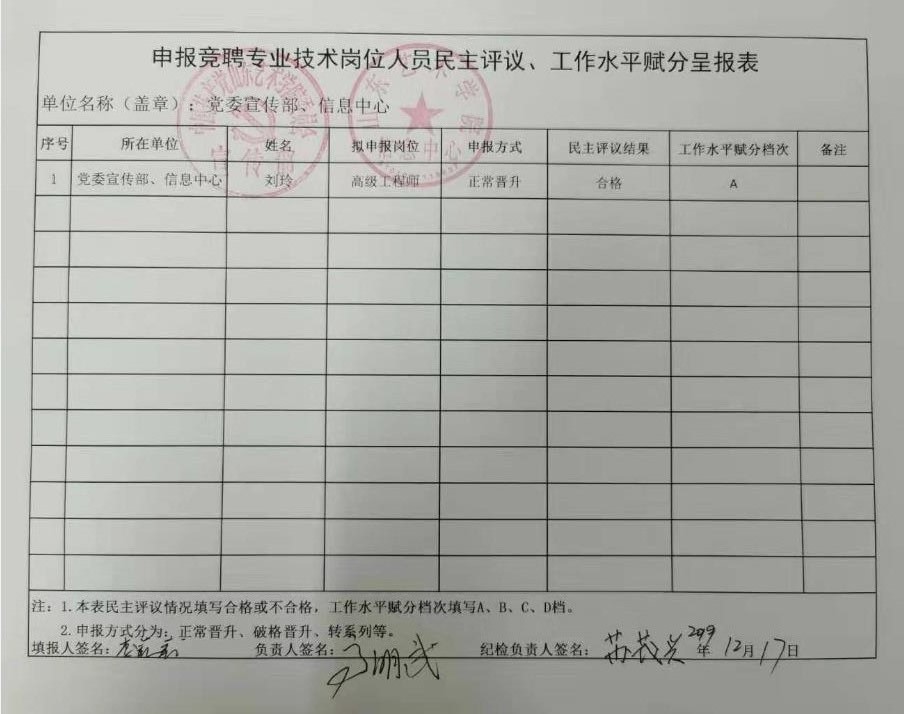 申报竞聘专业技术岗位人员民主评议、工作水平赋分呈报表
单位名称（盖章）：党委宣传部、信息中心
序号 所在单位 姓名 拟申报岗位 申报方式 民主评议结果 工作水平赋分档次 备注
1 党委宣传部、信息中心 刘玲 高级工程师 正常晋升 合格 A
注：1.本表民主评议情况填写合格或不合格，工作水平赋分档次填写A、B、C、D档。
2.申报方式分为：正常晋升、破格晋升、转系列等。
填报人签名： 负责人签名： 纪检负责人签名：苏茂兴 年12月17日
山东艺术学院
信息中心
宣传部